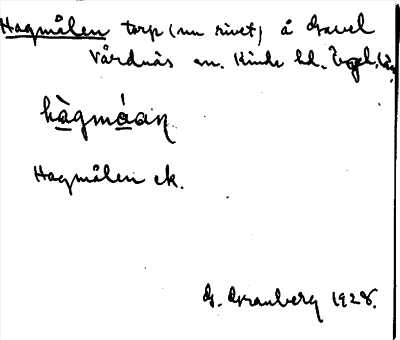 Hagmålen torp (nu rivet) å Gravel
Vårdnäs sn. Kinda hd. Ög. län
hàgmåan
Hagmålen ek.
G. Granberg 1928.